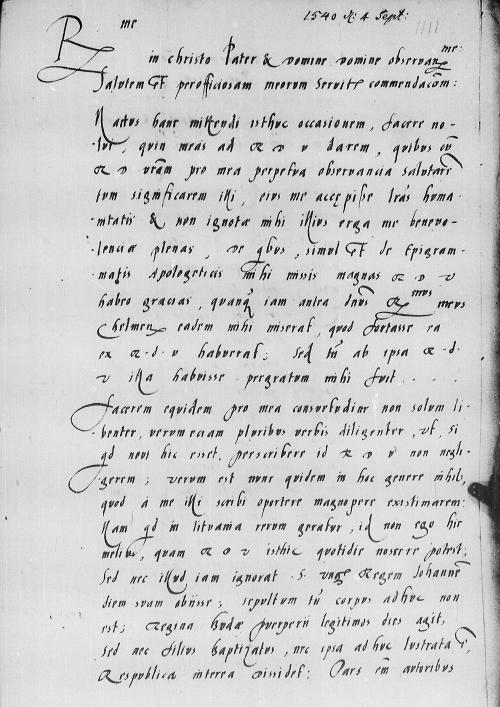 1540 4 Sept:
R me
in christo Pater & domine domine observan me:
Salutem et perofficiosam meorum servit commendacōm:
Nactus hanc mittendi isthuc occasionem, facere no-
lui, quin meas ad R D V darem, quibus cū
R D vram pro mea perpetua observancia salutarē
tum significarem illi, eius me accepisse lras huma-
nitatis & non ignotae mihi illius erga me benevo-
lenciae plenas, De qbus, simul et de Epigram-
matis Apologeticis mihi missis magnas R D V
habeo gracias, quanq iam antea dnus R mus meus
Chelmen eadem mihi miserat, quod fortasse ea
ex R. D. V habuerat; Sed tn ab ipsa R. D.
V illa habuisse pergratum mihi fuit . . .
Facerem equidem pro mea consuetudine non solum li-
benter, verumeciam pluribus verbis diligenter, ut, si
qd novi hic esset, perscribere id R D V non negli-
gerem; verum est nunc quidem in hoc genere nihil,
quod a me illi scribi oportere magnopere existimarem:
Nam qd in lituania rerum geratur, id non ego hic
melius, quam R D V isthic quotidie noscere potest;
Sed nec illud iam ignorat S. Regem Iohannē
diem suam obiisse; sepultum tn corpus adhuc non
est; Regina Budae puerperii legitimos dies agit,
Sed nec filius baptizatus, nec ipsa adhuc lustrata ē,
Respublica interea dissidet; Pars em autoribus